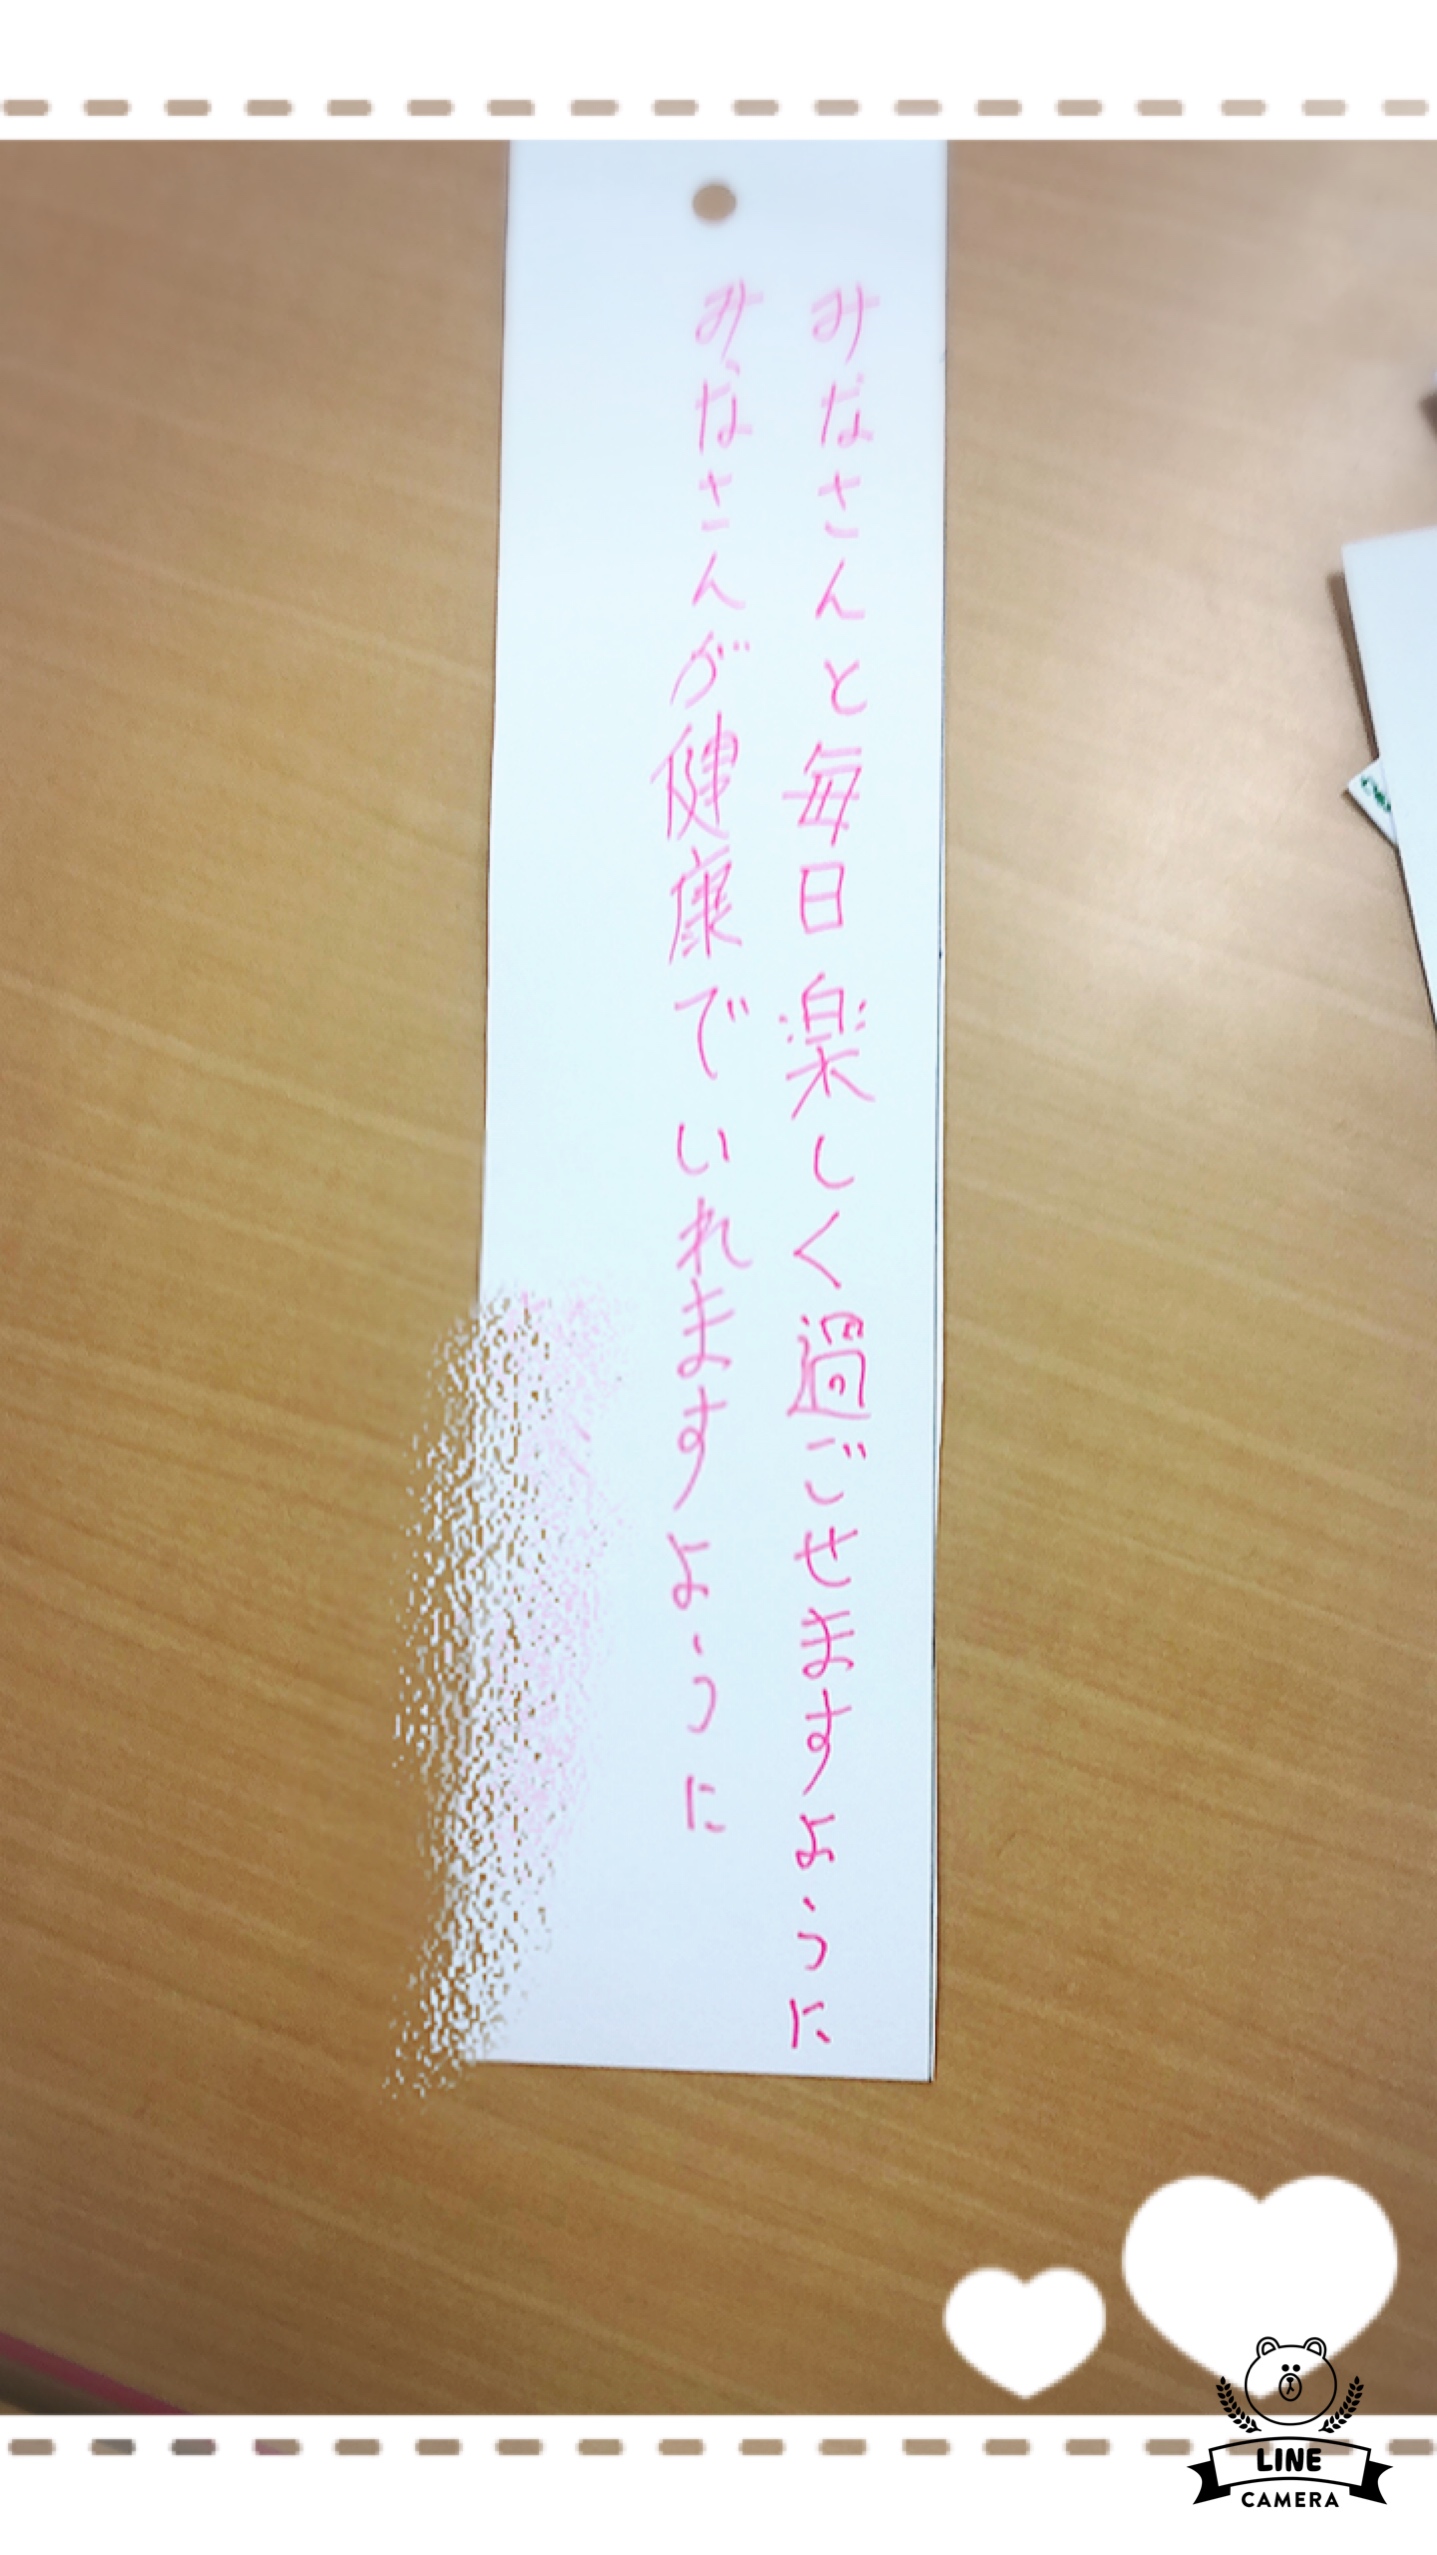 みなさんと毎日楽しく過ごせますように
みなさんが健康でいれますように
LINE
CAMERA